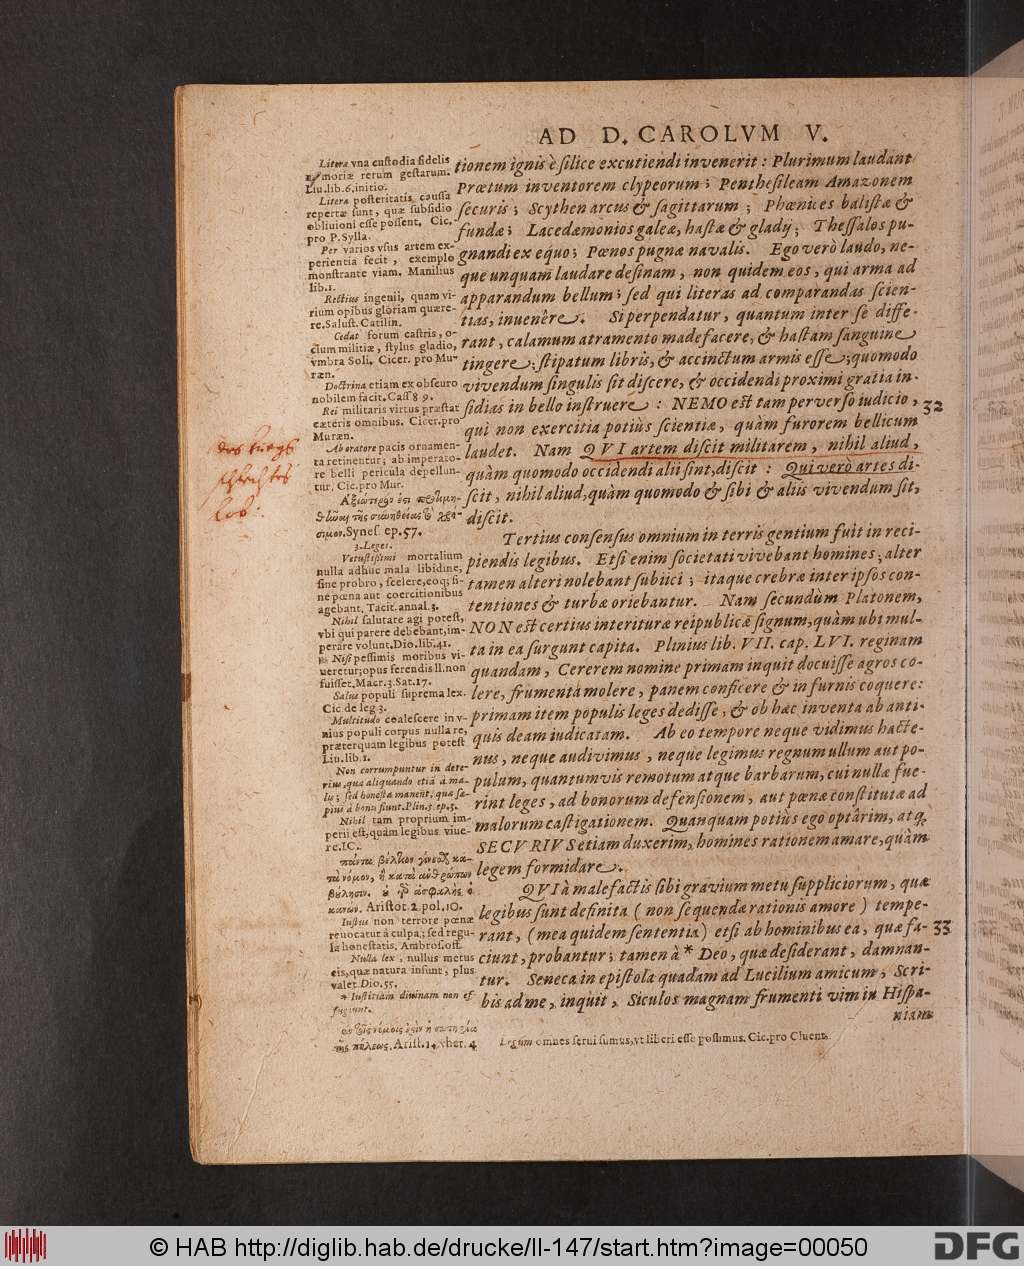 AD D. CAROLVM V.
tionem ignis è silice excutiendi invenerit : Plurimum laudant
Prœtum inventorem clypeorum ; Penthesileam Amazonem
securis ; Scythen arcus & sagittarum ; Phœnices balistæ &
fundæ ; Lacedæmonios galeæ, hastæ & gladij ; Thessalos pu-
gnandi ex equo ; Pœnos pugnæ navalis. Ego verò laudo, ne-
que unquam laudare desinam, non quidem eos, qui arma ad
apparandum bellum ; sed qui literas ad comparandas scien-
tias, invenêre. Si perpendatur, quantum inter se diffe-
rant, calamum atramento madefacere, & hastam sanguine
tingere ; stipatum libris, & accinctum armis esse ; quomodo
vivendum singulis sit discere, & occidendi proximi gratia in-
sidias in bello instruere : NEMO est tam perverso iudicio,
qui non exercitia potiùs scientiæ, quàm furorem bellicum
laudet. Nam QVI artem discit militarem, nihil aliud,
quàm quomodo occidendi alii sint, discit : Qui verò artes di-
scit, nihil aliud, quàm quomodo & sibi & aliis vivendum sit,
discit.
Tertius consensus omnium in terris gentium fuit in reci-
piendis legibus. Etsi enim societati vivebant homines ; alter
tamen alteri nolebant subiici ; itaque crebræ inter ipsos con-
tentiones & turbæ oriebantur. Nam secundùm Platonem,
NON est certius interituræ reipublicæ signum, quàm ubi mul-
ta in ea surgunt capita. Plinius lib. VII. cap. LVI. reginam
quandam, Cererem nomine primam inquit docuisse agros co-
lere, frumenta molere, panem conficere & in furnis coquere :
primam item populis leges dedisse, & ob hæc inventa ab anti-
quis deam iudicatam. Ab eo tempore neque vidimus hacte-
nus, neque audivimus, neque legimus regnum ullum aut po-
pulum, quantumvis remotum atque barbarum, cui nullæ fue-
rint leges, ad bonorum defensionem, aut pœnæ constitutæ ad
malorum castigationem. Quanquam potiùs ego optârim, atq́;
SECVRIVS etiam duxerim, homines rationem amare, quàm
legem formidare.
QVI à malefactis sibi gravium metu suppliciorum, quæ
legibus sunt definita ( non sequendæ rationis amore ) tempe-
rant, (mea quidem sententia) etsi ab hominibus ea, quæ fa-
ciunt, probantur ; tamen à * Deo, quæ desiderant, damnan-
tur. Seneca in epistola quadam ad Lucilium amicum ; Scri-
bis ad me, inquit, Siculos magnam frumenti vim in Hispa-
niam
Litera vna custodia fidelis
memoriæ rerum gestarum.
Liu.lib.6.initio.
Litera posteritatis caussa
repertæ sunt, quæ subsidio
oblivioni esse possent. Cic.
pro P.Sylla.
Per varios vsus artem ex-
perientia fecit, exemplo
monstrante viam. Manilius
lib.1.
Rectius ingenii, quam vi-
rium opibus gloriam quære-
re. Salust. Catilin.
Cedat forum castris, o-
tium militiæ, stylus gladio,
vmbra Soli. Cicer. pro Mu-
ræn.
Doctrina etiam ex obscuro
nobilem facit. Cass 8 9.
Rei militaris virtus præstat
cæteris omnibus. Cicer.pro
Muræn.
Ab oratore pacis ornamen-
ta retinentur; ab imperato-
re belli pericula depellun-
tur. Cic.pro Mur.
σιμον. Synes. ep.57.
3.Leges.
Vetustissimi mortalium
nulla adhuc mala libidine,
sine probro, scelere, eoq; si-
ne pœna aut coercitionibus
agebant. Tacit. annal.3.
Nihil salutare agi potest,
vbi qui parere debebant, im-
perare volunt. Dio.lib.41.
Nisi pessimis moribus vi-
veretur; opus ferendis ll. non
fuisset. Macr.3.Sat.17.
Salus populi suprema lex.
Cic de leg 3.
Multitudo coalescere in v-
nius populi corpus nulla re,
præterquam legibus potest
Liu.lib.1.
Non corrumpuntur in dete-
rius, qua aliquando etiã à ma-
lis; sed honesta manent, qua sæ-
pius à bonis fiunt. Plin.5.ep.3.
Nihil tam proprium im-
perii est, quàm legibus viue-
re. IC.
κανών. Aristot. 2.pol.10.
Iustus non terrore pœnæ
reuocatur à culpa; sed regu-
la honestatis. Ambros. off.
Nulla lex, nullus metus
eis, quæ natura insunt, plus
valet. Dio.55.
* Iustitiam diuinam non ef-
fugiunt.
τῆς πόλεως. Arist. 1. rhet. 4
Legum omnes serui sumus, vt liberi esse possimus. Cic. pro Cluent.
32
33
© HAB http://diglib.hab.de/drucke/ll-147/start.htm?image=00050
DFG